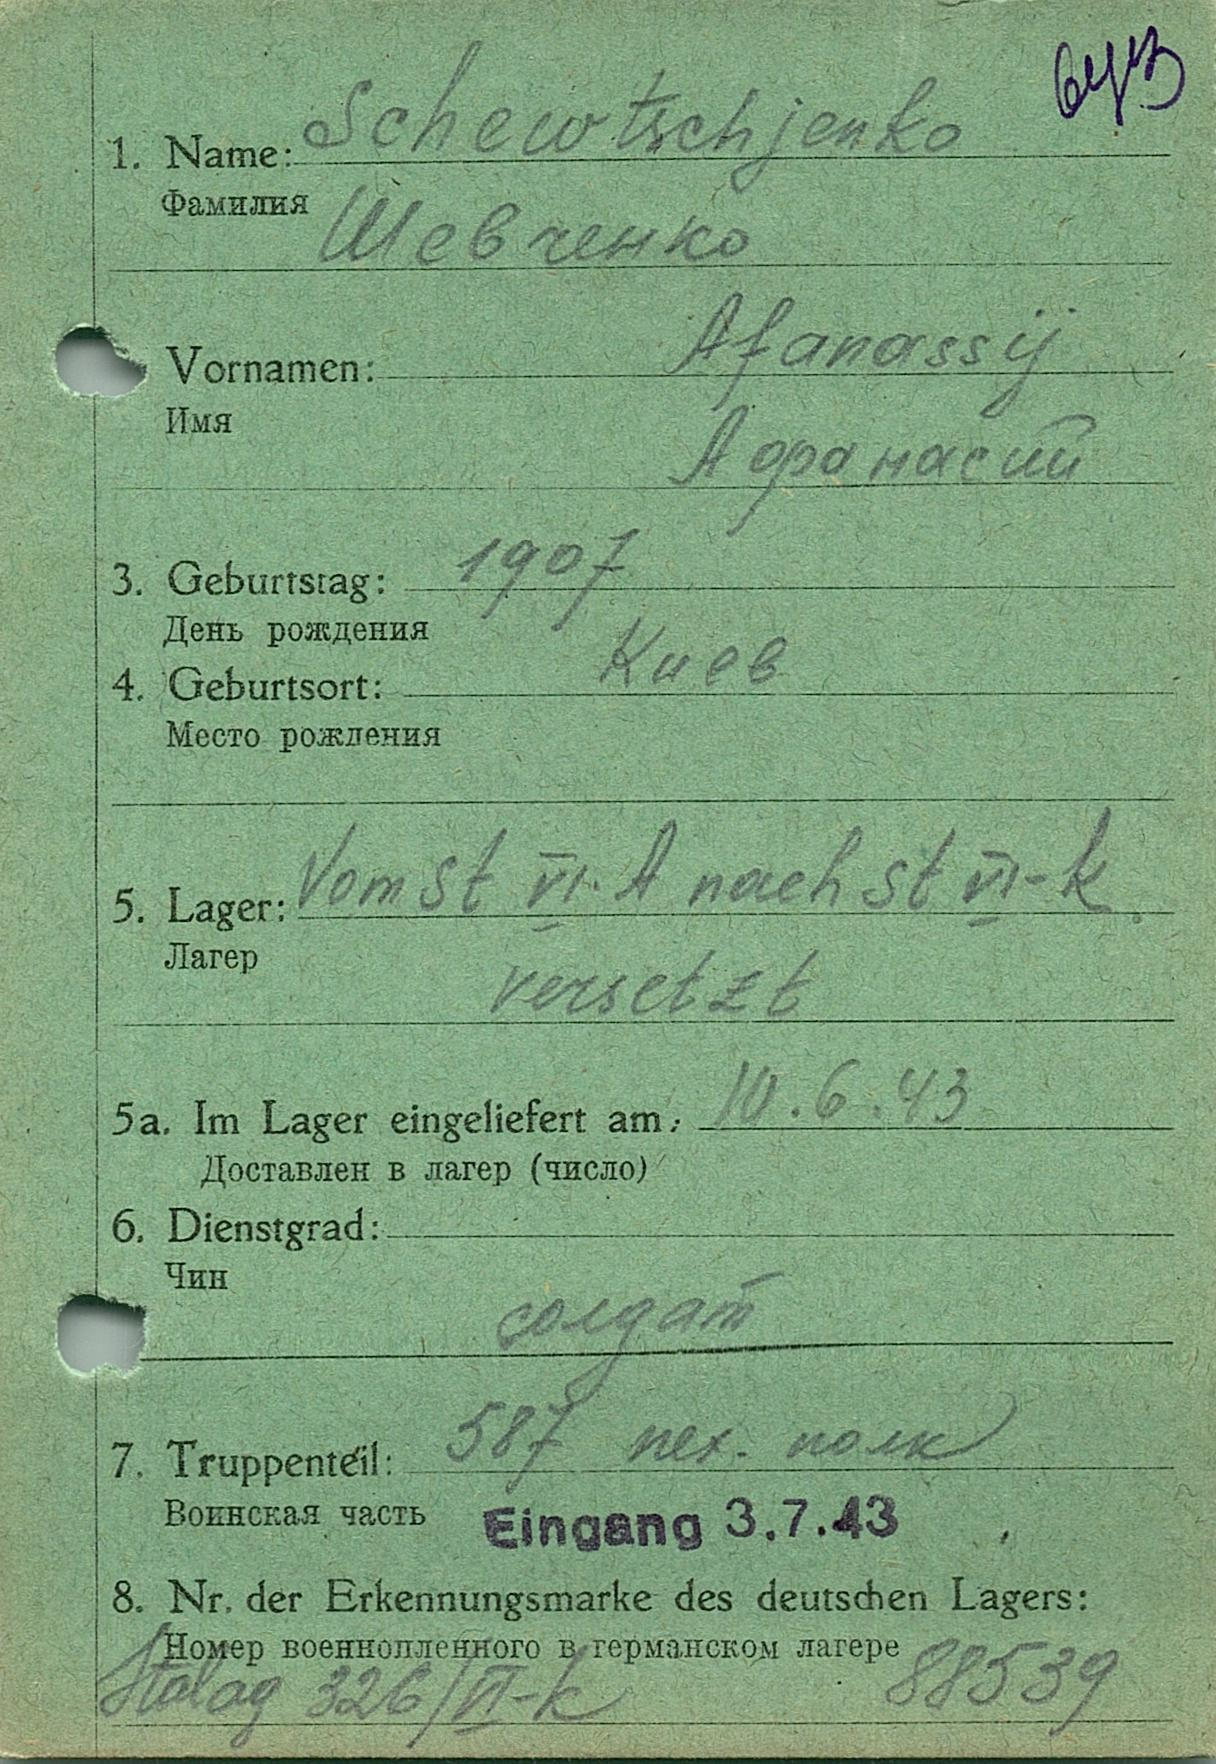 1. Name: Schewtschjenko
Фамилия
Шевченко
Vornamen: Afanassij
Имя
Афанасий
3. Geburtstag: 1907
День рождения
4. Geburtsort: Киев
Место рождения
5. Lager: Vom St VI. A nach St VI-K.
Лагер
versetzt
5a. Im Lager eingeliefert am: 10.6.43
Доставлен в лагер (число)
6. Dienstgrad:
Чин
солдат
7. Truppenteil: 587 пех. полк
Воинская часть
Eingang 3.7.43
8. Nr. der Erkennungsmarke des deutschen Lagers:
Номер военнопленного в германском лагере
Stalag 326/VI-K 88539